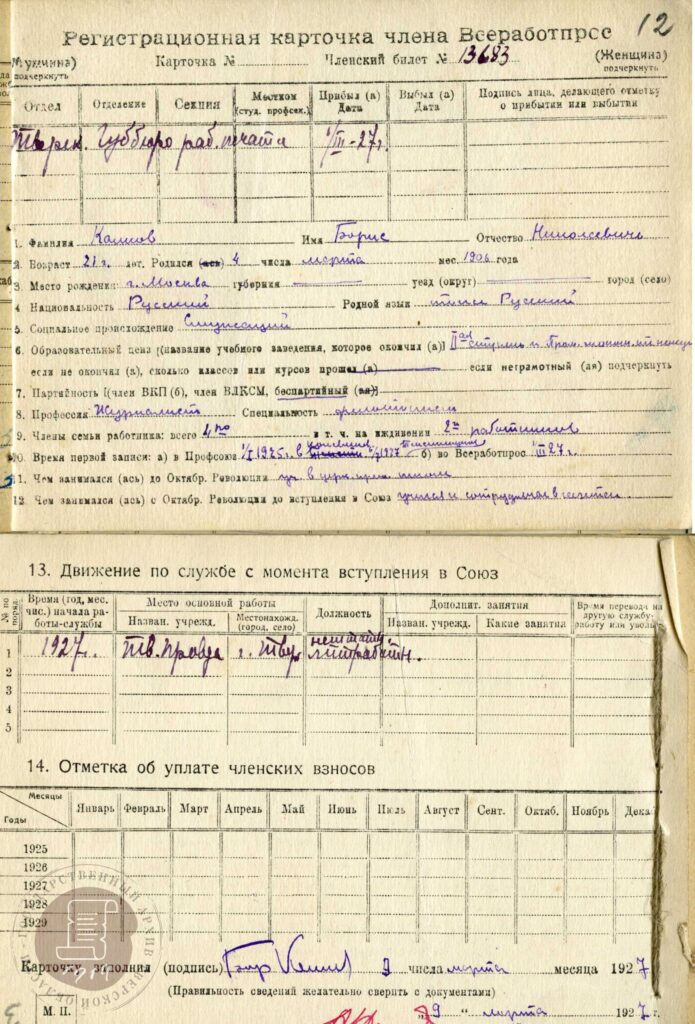 12
Регистрационная карточка члена Всеработпрос
(Мужчина) Карточка № Членский билет № 13683 (Женщина)
подчеркнуть подчеркнуть
Отдел Отделение Секция Местком (студ. профсек.) Прибыл (а) Дата Выбыл (а) Дата Подпись лица, делающего отметку о прибытии или выбытии
Тверск. Губбюро раб. печати 1/III-27г
1. Фамилия Имя Борис Отчество Николаевичъ
2. Возраст 21 г. лет. Родился (ась) 4 числа марта мес. 1906 года
3. Место рождения: г. Москва губерния уезд (округ) город (село)
4. Национальность Русский Родной язык Русский
5. Социальное происхождение
6. Образовательный ценз [(название учебного заведения, которое окончил (а)] II ой ступень и
если не окончил (а), сколько классов или курсов прошел (а) если неграмотный (ая) подчеркнуть
7. Партийность [(член ВКП (б), член ВЛКСМ, беспартийный (ая)]
8. Профессия Журналист Специальность
9. Члены семьи работника: всего 4ро в т. ч. на иждивении 2х работников
10. Время первой записи: а) в Профсоюз 1/I 1925 г. в б) во Всеработпрос 1/III 27 г.
11. Чем занимался (ась) до Октябр. Революции школе
12. Чем занимался (ась) с Октябр. Революции до вступления в Союз учился и сотрудничал в газетах
13. Движение по службе с момента вступления в Союз
№ по поряд. Время (год, мес. чис.) начала работы-службы Место основной работы Должность Дополнит. занятия Время перевода на другую службу-работу или уволь
Назван. учрежд. Местонахожд. (город, село) Назван. учрежд. Какие занятия
1 1927г. Тв. Правда г. Тверь нештатн. литработн.
2
3
4
5
14. Отметка об уплате членских взносов
Месяцы Январь Февраль Март Апрель Май Июнь Июль Август Сент. Октяб. Ноябрь Дека
Годы
1925
1926
1927
1928
1929
ГОСУДАРСТВЕННЫЙ АРХИВ ТВЕРСКОЙ ОБЛАСТИ
Карточку заполнил (подпись) 9 числа марта месяца 1927
(Правильность сведений желательно сверить с документами)
М. П. „9 “ марта 1927 г.